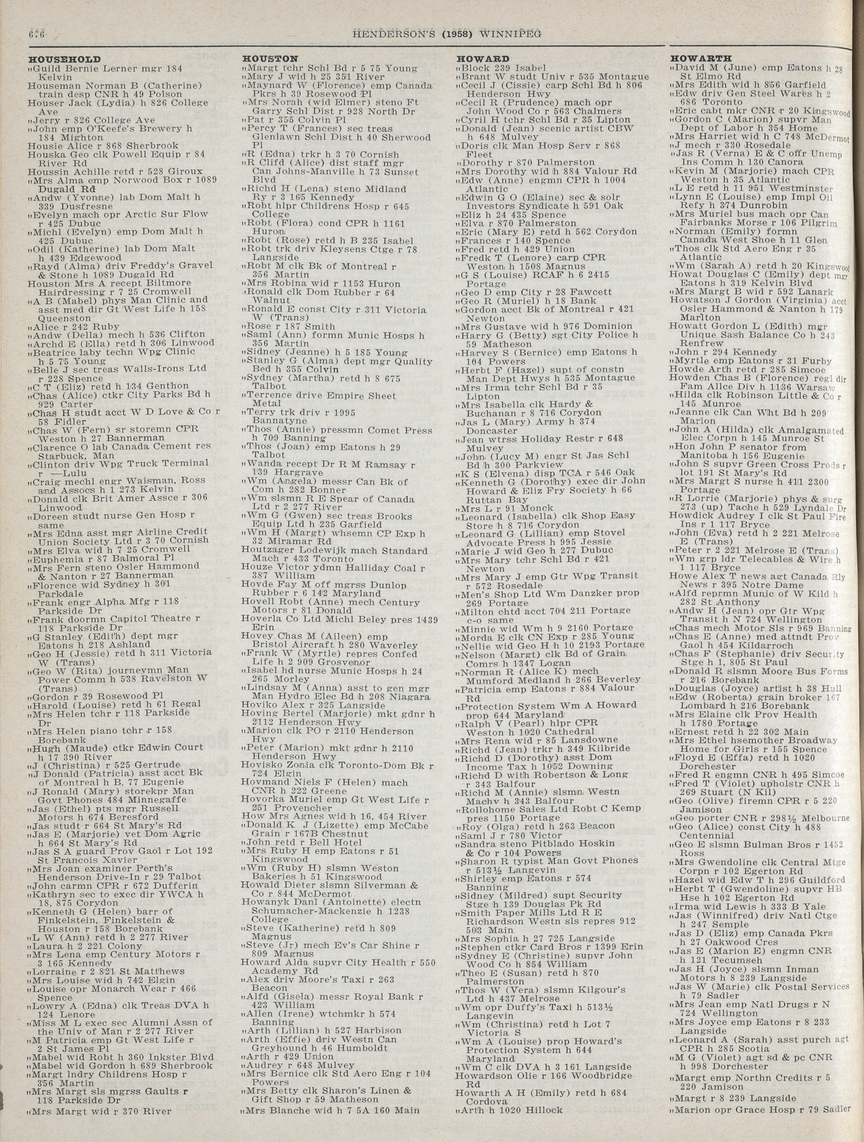 676
HENDERSON'S (1958) WINNIPEG
HOUSEHOLD
"Guild Bernie Lerner mgr 184
Kelvin
Houseman Norman B (Catherine)
train desp CNR h 49 Polson
Houser Jack (Lydia) h 826 College
Ave
"Jerry r 826 College Ave
"John emp O'Keefe's Brewery h
184 Mighton
Housie Alice r 868 Sherbrook
Houska Geo clk Powell Equip r 84
River Rd
Houssin Achille retd r 528 Giroux
"Mrs Alma emp Norwood Box r 1089
Dugald Rd
"Andw (Yvonne) lab Dom Malt h
339 Dusfresne
"Evelyn mach opr Arctic Sur Flow
r 425 Dubuc
"Michl (Evelyn) emp Dom Malt h
425 Dubuc
"Odil (Katherine) lab Dom Malt
h 439 Edgewood
"Rayd (Alma) driv Freddy's Gravel
& Stone h 1089 Dugald Rd
Houston Mrs A recept Biltmore
Hairdressing r 7 25 Cromwell
"A B (Mabel) phys Man Clinic and
asst med dir Gt West Life h 158
Queenston
"Alice r 242 Ruby
"Andw (Della) mech h 536 Clifton
"Archd E (Ella) retd h 306 Linwood
"Beatrice laby techn Wpg Clinic
h 5 75 Young
"Belle J sec treas Walls-Irons Ltd
r 228 Spence
"C T (Eliz) retd h 134 Genthon
"Chas (Alice) ctkr City Parks Bd h
929 Carter
"Chas H studt acct W D Love & Co r
58 Fidler
"Chas W (Fern) sr storemn CPR
Weston h 27 Bannerman
"Clarence O lab Canada Cement res
Starbuck, Man
"Clinton driv Wpg Truck Terminal
r —Lulu
"Craig mechl engr Waisman, Ross
and Assocs h 1 273 Kelvin
"Donald clk Brit Amer Assce r 306
Linwood
"Doreen studt nurse Gen Hosp r
same
"Mrs Edna asst mgr Airline Credit
Union Society Ltd r 3 70 Cornish
"Mrs Elva wid h 7 25 Cromwell
"Euphemia r 87 Balmoral Pl
"Mrs Fern steno Osler Hammond
& Nanton r 27 Bannerman
"Florence wid Sydney h 301
Parkdale
"Frank engr Alpha Mfg r 118
Parkside Dr
"Frank doormn Capitol Theatre r
118 Parkside Dr
"G Stanley (Edith) dept mgr
Eatons h 218 Ashland
"Geo H (Jessie) retd h 311 Victoria
W (Trans)
"Geo W (Rita) journeymn Man
Power Comm h 538 Ravelston W
(Trans)
"Gordon r 39 Rosewood Pl
"Harold (Louise) retd h 61 Regal
"Mrs Helen tchr r 118 Parkside
Dr
"Mrs Helen piano tchr r 158
Borebank
"Hugh (Maude) ctkr Edwin Court
h 17 390 River
"J (Christina) r 525 Gertrude
"J Donald (Patricia) asst acct Bk
of Montreal h B, 77 Eugenie
"J Ronald (Mary) storekpr Man
Govt Phones 484 Minnegaffe
"Jas (Ethel) pts mgr Russell
Motors h 674 Beresford
"Jas studt r 664 St Mary's Rd
"Jas E (Marjorie) vet Dom Agric
h 664 St Mary's Rd
"Jas S A guard Prov Gaol r Lot 192
St Francois Xavier
"Mrs Joan examiner Perth's
Henderson Drive-In r 29 Talbot
"John carmn CPR r 672 Dufferin
"Kathryn sec to exec dir YWCA h
18, 875 Corydon
"Kenneth G (Helen) barr of
Finkelstein, Finkelstein &
Houston r 158 Borebank
"L W (Ann) retd h 2 277 River
"Laura h 2 221 Colony
"Mrs Lena emp Century Motors r
3 165 Kennedy
"Lorraine r 2 821 St Matthews
"Mrs Louise wid h 742 Elgin
"Louise opr Monarch Wear r 466
Spence
"Lowry A (Edna) clk Treas DVA h
124 Lenore
"Miss M L exec sec Alumni Assn of
the Univ of Man r 2 277 River
"M Patricia emp Gt West Life r
2 St James Pl
"Mabel wid Robt h 360 Inkster Blvd
"Mabel wid Gordon h 689 Sherbrook
"Margt lndry Childrens Hosp r
356 Martin
"Mrs Margt sls mgrss Gaults r
118 Parkside Dr
"Mrs Margt wid r 370 River
HOUSTON
"Margt tchr Schl Bd r 5 75 Young
"Mary J wid h 25 351 River
"Maynard W (Florence) emp Canada
Pkrs h 39 Rosewood Pl
"Mrs Norah (wid Elmer) steno Ft
Garry Schl Dist r 928 North Dr
"Pat r 355 Colvin Pl
"Percy T (Frances) sec treas
Glenlawn Schl Dist h 40 Sherwood
Pl
"R (Edna) trkr h 3 70 Cornish
"R Cliffd (Alice) dist staff mgr
Can Johns-Manville h 73 Sunset
Blvd
"Richd H (Lena) steno Midland
Ry r 3 165 Kennedy
"Robt hlpr Childrens Hosp r 645
College
"Robt (Flora) cond CPR h 1161
Huron
"Robt (Rose) retd h B 235 Isabel
"Robt trk driv Kleysens Ctge r 78
Langside
"Robt M clk Bk of Montreal r
356 Martin
"Mrs Robina wid r 1153 Huron
"Ronald clk Dom Rubber r 64
Walnut
"Ronald E const City r 311 Victoria
W (Trans)
"Rose r 187 Smith
"Saml (Ann) formn Munic Hosps h
356 Martin
"Sidney (Jeanne) h 5 185 Young
"Stanley G (Alma) dept mgr Quality
Bed h 355 Colvin
"Sydney (Martha) retd h 8 675
Talbot
"Terrence drive Empire Sheet
Metal
"Terry trk driv r 1995
Bannatyne
"Thos (Annie) pressmn Comet Press
h 709 Banning
"Thos (Joan) emp Eatons h 29
Talbot
"Wanda recept Dr R M Ramsay r
139 Hargrave
"Wm (Angela) messr Can Bk of
Com h 282 Bonner
"Wm slsmn R E Spear of Canada
Ltd r 2 277 River
"Wm G (Gwen) sec treas Brooks
Equip Ltd h 235 Garfield
"Wm H (Margt) whsemn CP Exp h
32 Miramar Rd
Houtzager Lodewijk mach Standard
Mach r 433 Toronto
Houze Victor ydmn Halliday Coal r
387 William
Hovde Fay M off mgrss Dunlop
Rubber r 6 142 Maryland
Hovell Robt (Anne) mech Century
Motors r 81 Donald
Hoverla Co Ltd Michl Beley pres 1439
Erin
Hovey Chas M (Aileen) emp
Bristol Aircraft h 280 Waverley
"Frank W (Myrtle) repres Confed
Life h 2 909 Grosvenor
"Isabel hd nurse Munic Hosps h 24
265 Morley
"Lindsay M (Anna) asst to gen mgr
Man Hydro Elec Bd h 208 Niagara
Hoviko Alex r 325 Langside
Hoving Bertel (Marjorie) mkt gdnr h
2112 Henderson Hwy
"Marion clk PO r 2110 Henderson
Hwy
"Peter (Marion) mkt gdnr h 2110
Henderson Hwy
Hovisko Zonia clk Toronto-Dom Bk r
724 Elgin
Hovmand Niels F (Helen) mach
CNR h 222 Greene
Hovorka Muriel emp Gt West Life r
251 Provencher
How Mrs Agnes wid h 16, 454 River
"Donald K J (Lizette) emp McCabe
Grain r 167B Chestnut
"John retd r Bell Hotel
"Mrs Ruby H emp Eatons r 51
Kingswood
"Wm (Ruby H) slsmn Weston
Bakeries h 51 Kingswood
Howald Dieter slsmn Silverman &
Co r 844 McDermot
Howanyk Danl (Antoinette) electn
Schumacher-Mackenzie h 1238
College
"Steve (Katherine) retd h 809
Magnus
"Steve (Jr) mech Ev's Car Shine r
809 Magnus
Howard Alda supvr City Health r 550
Academy Rd
"Alex driv Moore's Taxi r 263
Beacon
"Alfd (Gisela) messr Royal Bank r
423 William
"Allen (Irene) wtchmkr h 574
Banning
"Arth (Lillian) h 527 Harbison
"Arth (Effie) driv Westn Can
Greyhound h 46 Humboldt
"Arth r 429 Union
"Audrey r 648 Mulvey
"Mrs Bernice clk Std Aero Eng r 104
Powers
"Mrs Betty clk Sharon's Linen &
Gift Shop r 59 Matheson
"Mrs Blanche wid h 7 5A 160 Main
HOWARD
"Block 239 Isabel
"Brant W studt Univ r 535 Montague
"Cecil J (Cissie) carp Schl Bd h 806
Henderson Hwy
"Cecil R (Prudence) mach opr
John Wood Co r 563 Chalmers
"Cyril H tchr Schl Bd r 35 Lipton
"Donald (Jean) scenic artist CBW
h 648 Mulvey
"Doris clk Man Hosp Serv r 868
Fleet
"Dorothy r 870 Palmerston
"Mrs Dorothy wid h 884 Valour Rd
"Edw (Anne) engmn CPR h 1004
Atlantic
"Edwin G O (Elaine) sec & solr
Investors Syndicate h 591 Oak
"Eliz h 24 435 Spence
"Elva r 870 Palmerston
"Eric (Mary E) retd h 562 Corydon
"Frances r 140 Spence
"Fred retd r 429 Union
"Fredk T (Lenore) carp CPR
Weston h 1508 Magnus
"G S (Louise) RCAF h 6 2415
Portage
"Geo D emp City r 28 Fawcett
"Geo R (Muriel) h 18 Bank
"Gordon acct Bk of Montreal r 421
Newton
"Mrs Gustave wid h 976 Dominion
"Harry G (Betty) sgt City Police h
59 Matheson
"Harvey S (Bernice) emp Eatons h
104 Powers
"Herbt F (Hazel) supt of constn
Man Dept Hwys h 535 Montague
"Mrs Irma tchr Schl Bd r 35
Lipton
"Mrs Isabella clk Hardy &
Buchanan r 8 716 Corydon
"Jas L (Mary) Army h 374
Doncaster
"Jean wtrss Holiday Restr r 648
Mulvey
"John (Lucy M) engr St Jas Schl
Bd h 300 Parkview
"K S (Elvena) disp TCA r 546 Oak
"Kenneth G (Dorothy) exec dir John
Howard & Eliz Fry Society h 66
Ruttan Bay
"Mrs L r 91 Monck
"Leonard (Isabella) clk Shop Easy
Store h 8 716 Corydon
"Leonard G (Lillian) emp Stovel
Advocate Press h 995 Jessie
"Marie J wid Geo h 277 Dubuc
"Mrs Mary tchr Schl Bd r 421
Newton
"Mrs Mary J emp Gtr Wpg Transit
r 572 Rosedale
"Men's Shop Ltd Wm Danzker prop
269 Portage
"Milton chtd acct 704 211 Portage
c-o same
"Minnie wid Wm h 9 2160 Portage
"Morda E clk CN Exp r 285 Young
"Nellie wid Geo H h 10 2193 Portage
"Nelson (Margt) clk Bd of Grain
Comrs h 1347 Logan
"Norman R (Alice K) mech
Mumford Medland h 266 Beverley
"Patricia emp Eatons r 884 Valour
Rd
"Protection System Wm A Howard
prop 644 Maryland
"Ralph V (Pearl) hlpr CPR
Weston h 1026 Cathedral
"Mrs Rena wid r 85 Lansdowne
"Richd (Jean) trkr h 349 Kilbride
"Richd D (Dorothy) asst Dom
Income Tax h 1052 Downing
"Richd D with Robertson & Long
r 343 Balfour
"Richd M (Annie) slsmn Westn
Machy h 343 Balfour
"Rollohome Sales Ltd Robt C Kemp
pres 1150 Portage
"Roy (Olga) retd h 263 Beacon
"Saml J r 780 Victor
"Sandra steno Pitblado Hoskin
& Co r 104 Powers
"Sharon R typist Man Govt Phones
r 513½ Langevin
"Shirley emp Eatons r 574
Banning
"Sidney (Mildred) supt Security
Stge h 139 Douglas Pk Rd
"Smith Paper Mills Ltd R E
Richardson Westn sls repres 912
503 Main
"Mrs Sophia h 27 725 Langside
"Stephen ctkr Card Bros r 1399 Erin
"Sydney E (Christine) supvr John
Wood Co h 854 William
"Theo E (Susan) retd h 870
Palmerston
"Thos W (Vera) slsmn Kilgour's
Ltd h 437 Melrose
"Wm opr Duffy's Taxi h 513½
Langevin
"Wm (Christina) retd h Lot 7
Victoria S
"Wm A (Louise) prop Howard's
Protection System h 644
Maryland
"Wm C clk DVA h 3 161 Langside
Howardson Olie r 166 Woodbridge
Rd
Howarth A H (Emily) retd h 684
Cordova
"Arth h 1020 Hillock
HOWARTH
"David M (June) emp Eatons h 28
St Elmo Rd
"Mrs Edith wid h 856 Garfield
"Edw driv Gen Steel Wares h 2
686 Toronto
"Eric cabt mkr CNR r 20 Kingswood
"Gordon C (Marion) supvr Man
Dept of Labor h 354 Home
"Mrs Harriet wid h C 748 McDermot
"J mech r 330 Rosedale
"Jas R (Verna) E & C offr Unemp
Ins Comm h 130 Canora
"Kevin M (Marjorie) mach CPR
Weston h 35 Atlantic
"L E retd h 11 951 Westminster
"Lynn E (Louise) emp Impl Oil
Refy h 374 Dunrobin
"Mrs Muriel bus mach opr Can
Fairbanks Morse r 106 Pilgrim
"Norman (Emily) formn
Canada West Shoe h 11 Glen
"Thos clk Std Aero Eng r 35
Atlantic
"Wm (Sarah A) retd h 20 Kingswood
Howat Douglas C (Emily) dept mgr
Eatons h 319 Kelvin Blvd
"Mrs Margt B wid r 592 Lanark
Howatson J Gordon (Virginia) acct
Osler Hammond & Nanton h 179
Marlton
Howatt Gordon L (Edith) mgr
Unique Sash Balance Co h 243
Renfrew
"John r 294 Kennedy
"Myrtle emp Eatons r 31 Furby
Howde Arth retd r 285 Simcoe
Howden Chas B (Florence) regl dir
Fam Alice Div h 1136 Warsaw
"Hilda clk Robinson Little & Co r
145 Munroe
"Jeanne clk Can Wht Bd h 209
Marion
"John A (Hilda) clk Amalgamated
Elec Corpn h 145 Munroe St
"Hon John P senator from
Manitoba h 156 Eugenie
"John S supvr Green Cross Prods r
lot 191 St Mary's Rd
"Mrs Margt S nurse h 411 2300
Portage
"R Lorrie (Marjorie) phys & surg
273 (up) Tache h 529 Lyndale Dr
Howdick Audrey I clk St Paul Fire
Ins r 1 117 Bryce
"John (Eva) retd h 2 221 Melrose
E (Trans)
"Peter r 2 221 Melrose E (Trans)
"Wm grp ldr Telecables & Wire h
1 117 Bryce
Howe Alex T news agt Canada Rly
News r 395 Notre Dame
"Alfd reprmn Munic of W Kild h
282 St Anthony
"Andw H (Jean) opr Gtr Wpg
Transit h N 724 Wellington
"Chas mech Motor Sls r 969 Banning
"Chas E (Anne) med attndt Prov
Gaol h 454 Kildarroch
"Chas F (Stephanie) driv Security
Stge h 1, 805 St Paul
"Donald R slsmn Moore Bus Forms
r 216 Borebank
"Douglas (Joyce) artist h 38 Hull
"Edw (Roberta) grain broker 167
Lombard h 216 Borebank
"Mrs Elaine clk Prov Health
h 1780 Portage
"Ernest retd h 22 302 Main
"Mrs Ethel hsemother Broadway
Home for Girls r 155 Spence
"Floyd E (Effa) retd h 1020
Dorchester
"Fred R engmn CNR h 495 Simcoe
"Fred T (Violet) upholstr CNR h
269 Stuart (N Kil)
"Geo (Olive) firemn CPR r 5 220
Jamison
"Geo porter CNR r 298½ Melbourne
"Geo (Alice) const City h 488
Centennial
"Geo E slsmn Bulman Bros r 1452
Ross
"Mrs Gwendoline clk Central Mtge
Corpn r 102 Egerton Rd
"Hazel wid Edw T h 296 Guildford
"Herbt T (Gwendoline) supvr HB
Hse h 102 Egerton Rd
"Irma wid Lewis h 333 B Yale
"Jas (Winnifred) driv Natl Ctge
h 247 Semple
"Jas D (Eliz) emp Canada Pkrs
h 27 Oakwood Cres
"Jas E (Marion E) engmn CNR
h 121 Tecumseh
"Jas H (Joyce) slsmn Inman
Motors h 8 239 Langside
"Jas W (Marie) clk Postal Services
h 79 Sadler
"Mrs Jean emp Natl Drugs r N
724 Wellington
"Mrs Joyce emp Eatons r 8 233
Langside
"Leonard A (Sarah) asst purch agt
CPR h 285 Scotia
"M G (Violet) agt sd & pc CNR
h 998 Dorchester
"Margt emp Northn Credits r 5
220 Jamison
"Margt r 8 239 Langside
"Marion opr Grace Hosp r 79 Sadler